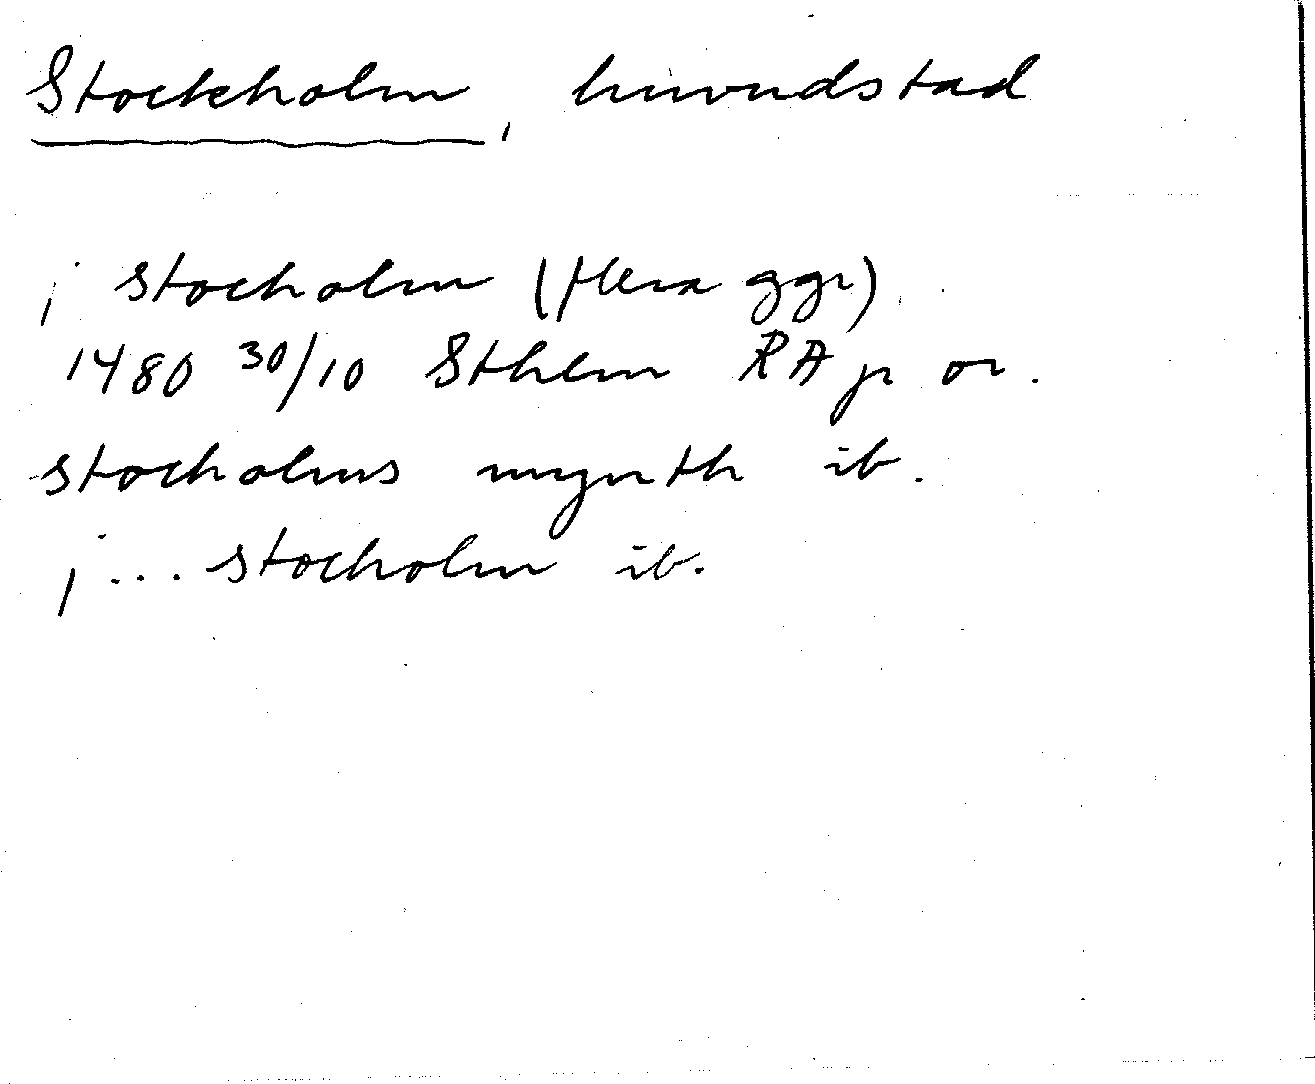 Stockholm, huvudstad
j stocholm (flera ggr)
1480 30/10 Sthlm RA p or.
stocholms mynth ib.
j ... stocholm ib.